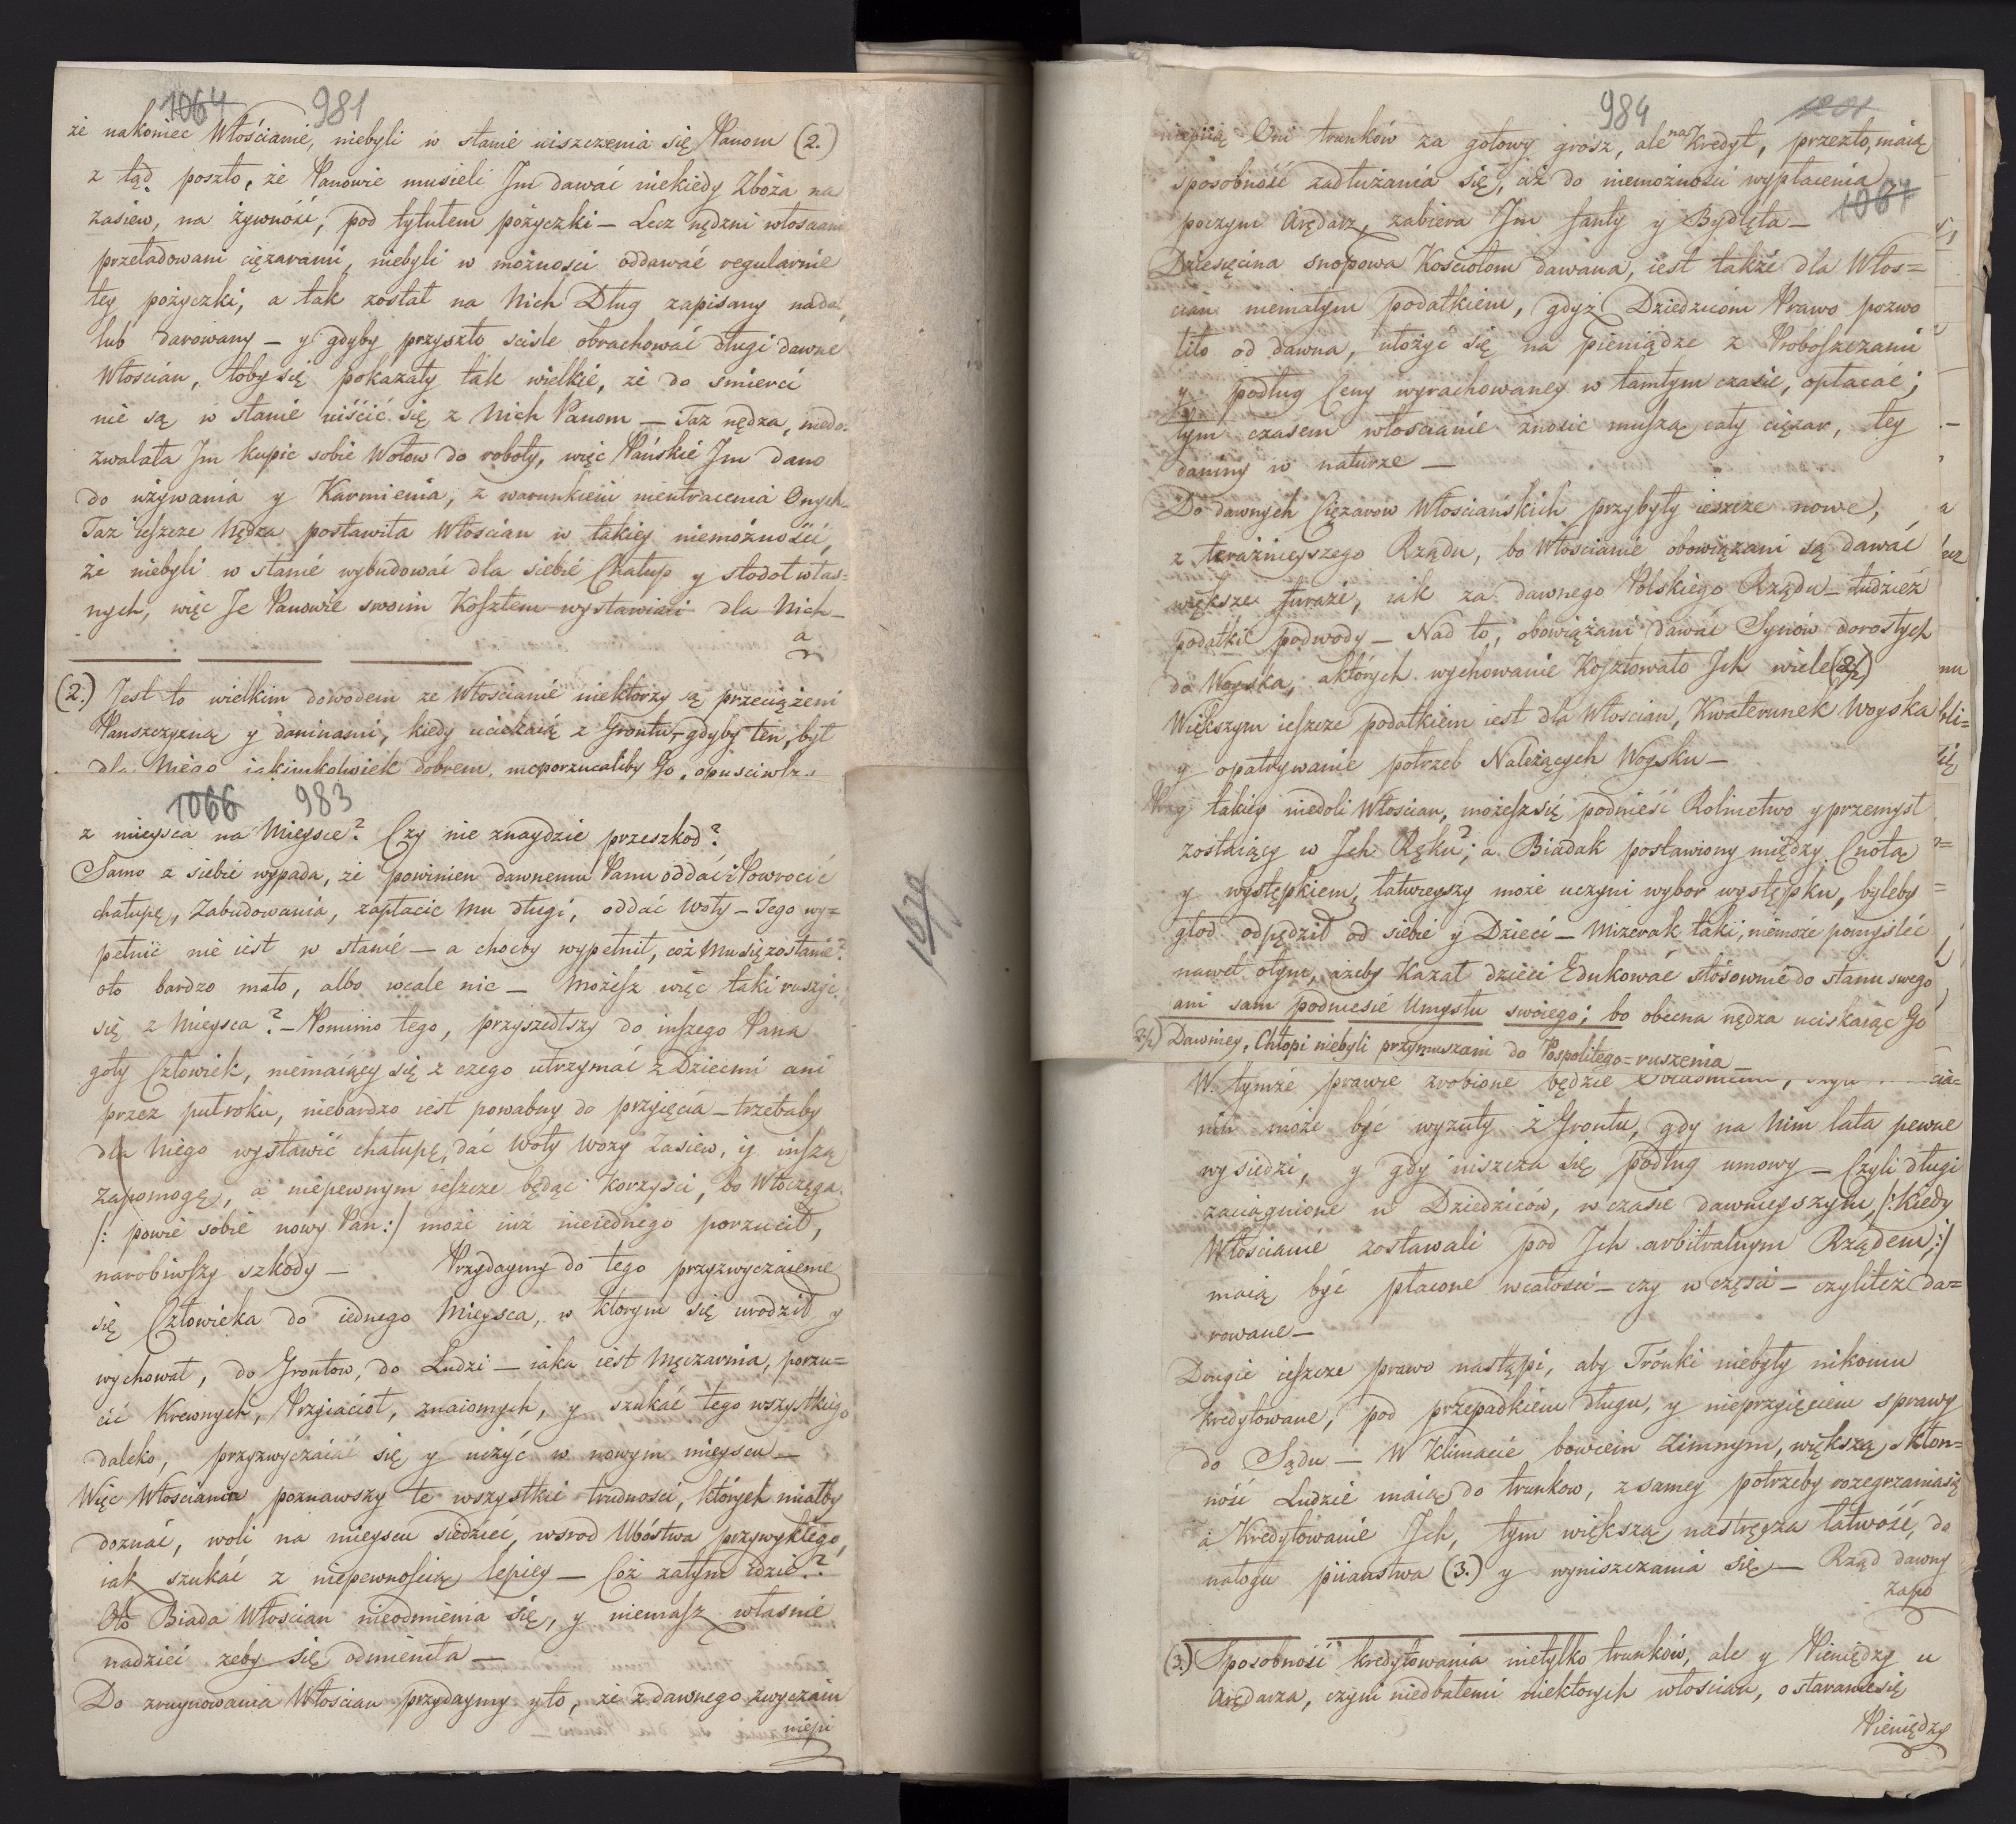 1064 981
że nakoniec Włościanie, niebyli w stanie uiszczenia się Panom (2.)
z tąd poszło, że Panowie musieli Jm dawać niekiedy Zboża na
zasiew, na żywność, pod tytułem pożyczki – Lecz nędzni włościanie
przeładowani ciężarami, niebyli w możnosci oddawać regularnie
tey pożyczki, a tak został na Nich Dług zapisany nadal,
lub darowany – y gdyby przyszło scisle obrachować długi dawne
Włoscian, toby się pokazały tak wielkie, że do smierci
nie są w stanie uiścić się z Nich Panom – Taz nędza, niedo-
zwalała Jm kupic sobie Wołow do roboty, więc Pańskie Jm dano
do używania y Karmienia, z warunkiem nieutracenia Onych –
Taz ieszcze Nędza postawiła Włoscian w takiey niemożności,
że niebyli w stanie wybudować dla siebie Chałup y stodoł włas=
nych, więc Je Panowie swoim Kosztem wystawiali dla Nich –
a
(2.) Jest to wielkim dowodem ze Włoscianie niektorzy są przeciążeni
Panszczyzną y daninami, kiedy uciekaią z Grontu, – gdyby ten, był
dla Niego iakimkolwiek dobrem, nieporzucaliby Go, opusciwszy
1066 983
z mieysca na Mieysce? Czy nie znaydzie przeszkod?
Samo z siebie wypada, że powinien dawnemu Panu oddać i Powrocić
chałupę, Zabudowania, zapłacic Mu długi, oddać Woły – Tego wy=
pełnic nie iest w stanie – a chocby wypełnił, coż Mu się zostanie?
oto bardzo mało, albo wcale nic – Możesz więc taki ruszyć
się z Mieysca? – Pomimo tego, przyszedłszy do inszego Pana
goły Człowiek, niemaiący się z czego utrzymać z Dziecmi ani
przez puł roku, niebardzo iest powabny do przyięcia – trzebaby
dla Niego wystawić chałupę, dać Woły Wozy Zasiew, y inszą
Zapomogę, a niepewnym ieszcze będąc Korzysci, bo Włóczęga
/: powie sobie nowy Pan :/ może iuż nieiednego porzucił,
narobiwszy szkody – Przydaymy do tego przyzwyczaienie
się Człowieka do iednego Mieysca, w ktorym się urodził y
wychował, do Grontow, do Ludzi – iaka iest Męczarnia, porzu=
cić Krewnych, Przyiaciół, znaiomych, y szukać tego wszystkiego
daleko, przyzwyczaiać się y użyć w nowym mieyscu –
Więc Włoscianin poznawszy te wszystkie trudnosci, których miałby
doznać, woli na mieyscu siedzieć, wsrod Ubóstwa przywykłego,
iak szukać z niepewnością lepiey – Coż zatym idzie?
Oto Biada Włoscian nieodmienia się, y niemasz własnie
nadziei zeby się odmieniła –
Do zruynowania Włoscian przydaymy y to, że z dawnego zwyczaiu
niepi
1679
984 1201
niepiią Oni trunków za gotowy grosz, ale na Kredyt, przezto, maią
sposobność zadłużania się, aż do niemożności wypłacenia,
1067
poczym Arędarz, zabiera Jm fanty y Bydlęta –
Dziesięcina snopowa Kościołom dawana, iest także dla Włos=
cian niemałym podatkiem, gdyż Dziedzicom Prawo pozwo
liło od dawna, ułożyć się na pieniądze z Proboszczami
y podług Ceny wyrachowaney w tamtym czasie, opłacać;
tym czasem włoscianie znosic muszą cały ciężar, tey
daniny w naturze –
Do dawnych Ciężarow Włosciańskich przybyły ieszcze nowe,
z teraźnieyszego Rządu, bo Włoscianie obowiązani są dawać
większe furaże, iak za dawnego Polskiego Rządu – tudzież
podatki podwody – Nad to, obowiązani dawać Synów dorosłych
do Woyska, aktórych wychowanie Kosztowało Jch wiele (2½)
Większym ieszcze podatkiem iest dla Włoscian, Kwaterunek Woyska
y opatrywanie potrzeb Należących Woysku –
Przy takiey niedoli Włoscian, możesz się podnieść Rolnictwo y przemysł
zostaiący w Jch Ręku?; a Biadak postawiony między Cnotą
y występkiem, łatwieyszy może uczyni wybor występku, byleby
głod odpędził od siebie y Dzieci – Mizerak taki, niemoże pomyśleć
nawet otym, ażeby Kazał dzieci Edukować stósownie do stanu swego
ani sam podniesić Umysłu swoiego; bo obecna nędza uciskaiąc Go
2½) Dawniey, Chłopi niebyli przymuszani do Pospolitego=ruszenia –
W tymże prawie zrobione będzie
nin może być wyzuty z Grontu, gdy na Nim lata pewne
wysiedzi, y gdy uiszcza się podług umowy – Czyli długi
zaciągnione u Dziedziców, w czasie dawnieyszym, /: Kiedy
Włoscianie zostawali pod Jch arbitralnym Rządem :/
maią być płacone wcałosci – czy w częsci – czyliteż da=
rowane –
Drugie ieszcze prawo nastąpi, aby Trónki niebyły nikomu
kredytowane, pod przepadkiem długu, y nieprzyięciem sprawy
do Sądu – W Klimacie bowiem Zimnym, większą skłon=
ność Ludzie maią do trunkow, z samey potrzeby rozegrzania się
a Kredytowanie Jch, tym większą nastręcza łatwość, do
nałogu piiaństwa (3.) y wyniszczania się – Rząd dawny
zapo
(3.) Sposobność kredytowania nietylko trunków, ale y Pieniędzy u
Arędarza, czyni niedbałemi niektorych włoscian, o staranie się
Pieniędzy